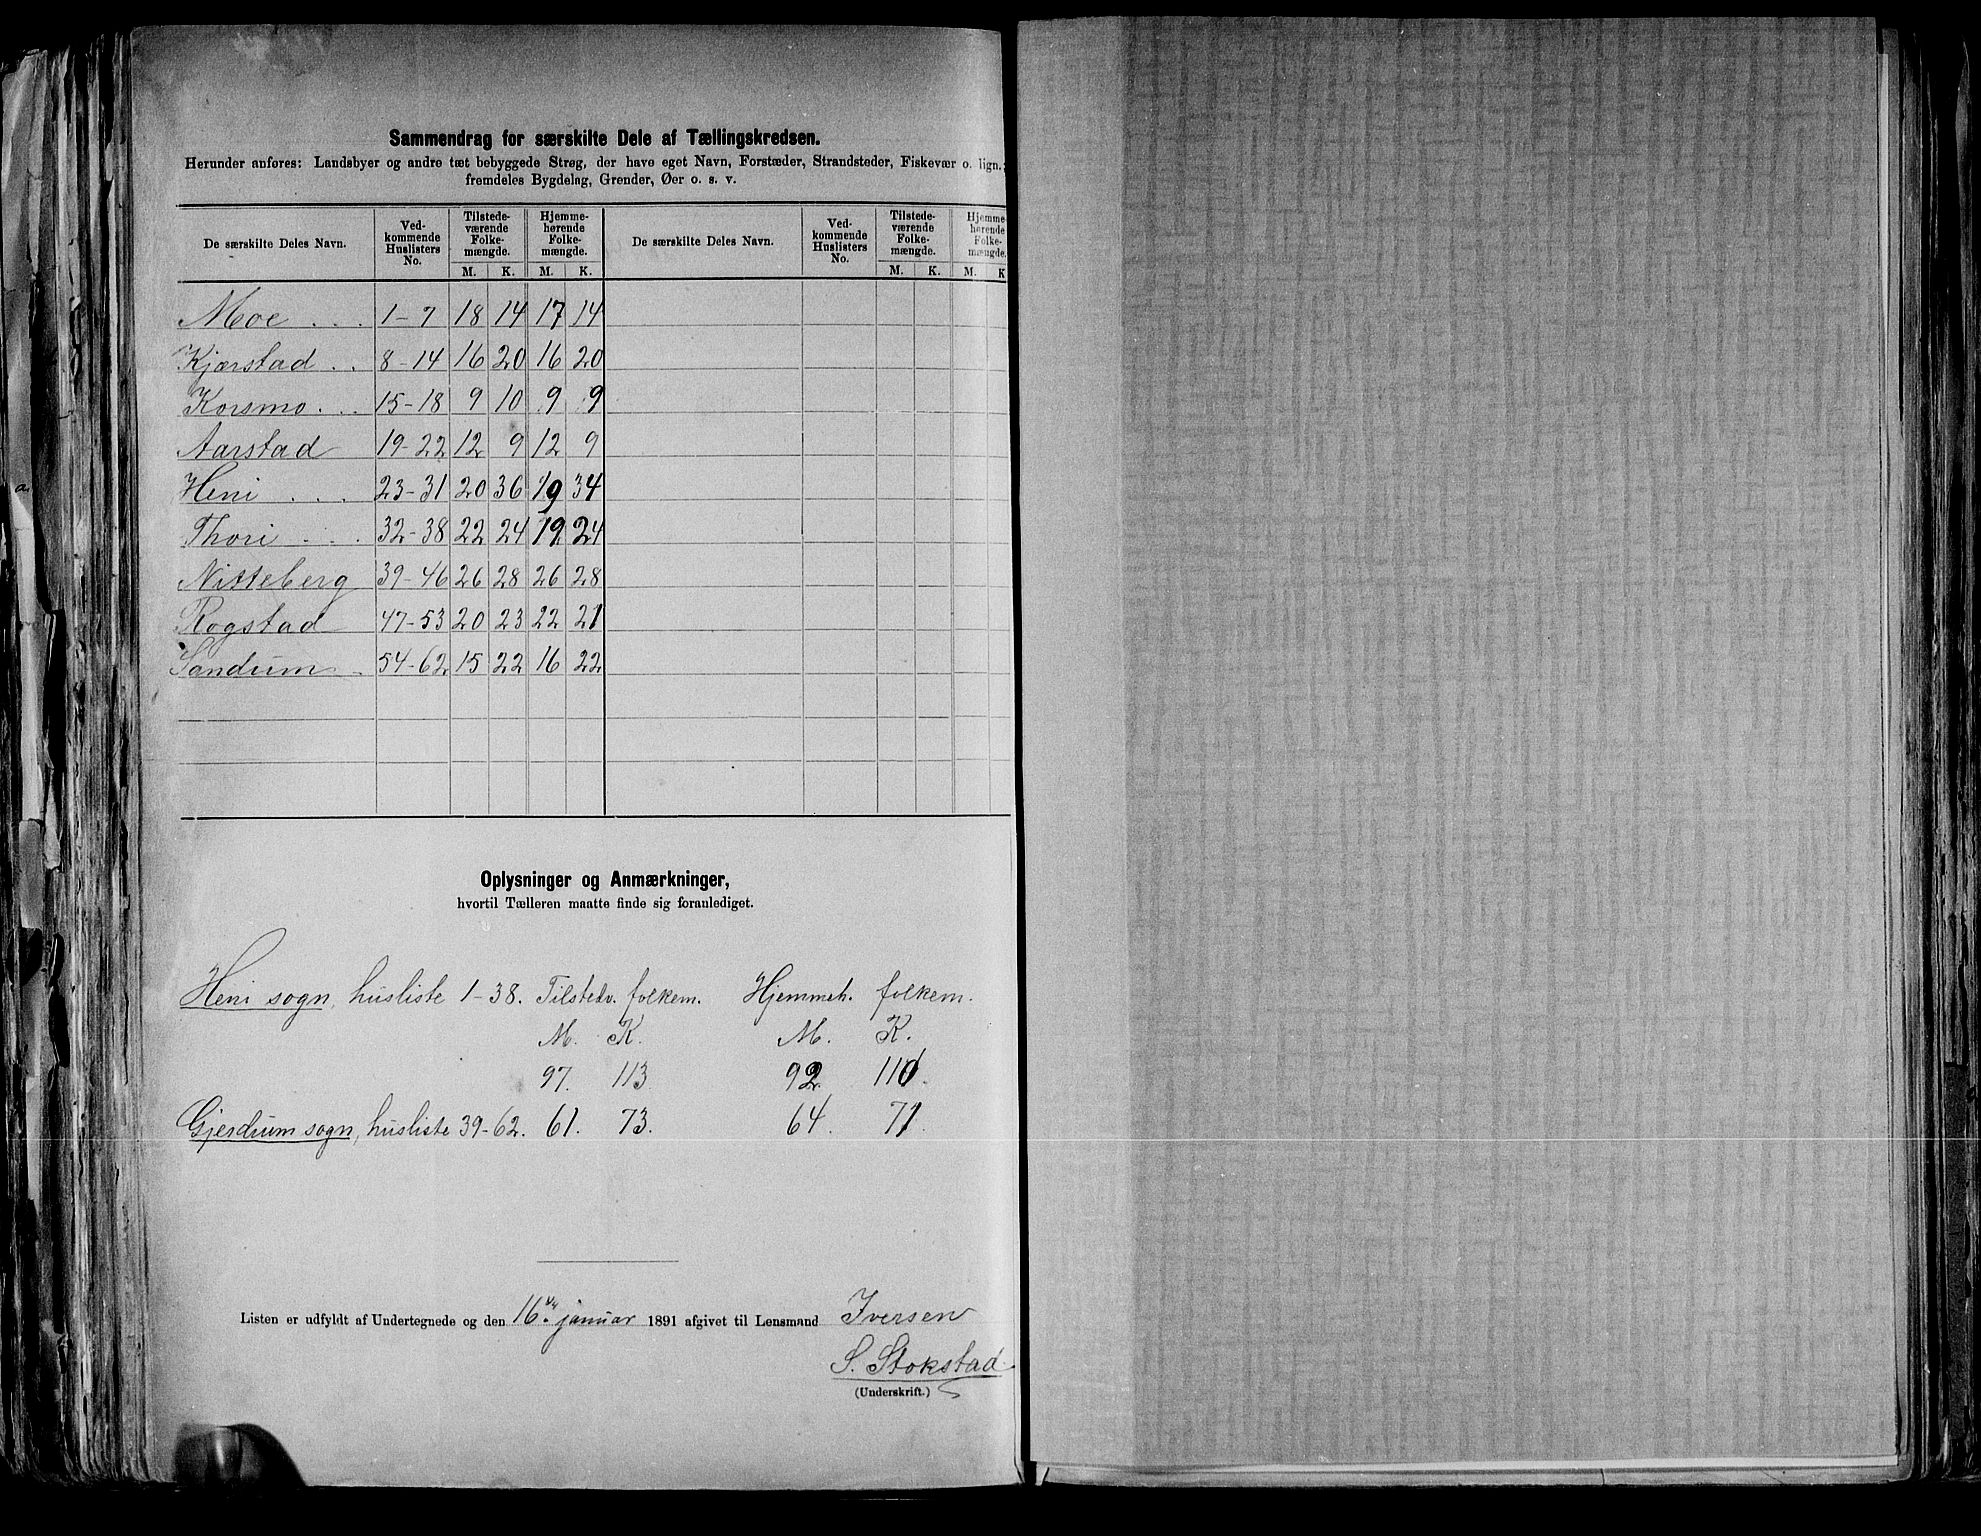 Sammendrag for særskilte Dele af Tællingskredsen.
Herunder anføres: Landsbyer og andre tæt bebyggede Strøg, der have eget Navn, Forstæder, Strandsteder, Fiskevær o. lign.;
fremdeles Bygdelag, Grender, Øer o. s. v.
De særskilte Deles Navn. Ved-kommende Huslisters No. Tilstede-værende Folke-mængde. Hjemme-hørende Folke-mængde. De særskilte Deles Navn. Ved-kommende Huslisters No. Tilstede-værende Folke-mængde. Hjemme-hørende Folke-mængde.
M. K. M. K. M. K. M. K
Moe . . . 1-7 18 14 17 14
Kjærstad . . 8-14 16 20 16 20
Korsmo . . . 15-18 9 10 9 9
Aarstad 19-22 12 9 12 9
Heni . . . 23-31 20 36 19 34
Thori . . . 32-38 22 24 19 24
Nitteberg 39-46 26 28 26 28
Rogstad 47-53 20 23 22 21
Sandum . 54-62 15 22 16 22
Oplysninger og Anmærkninger,
hvortil Tælleren maatte finde sig foranlediget.
Heni sogn, husliste 1-38. Tilstedv. folkem. Hjemmeh. folkem.
M. K. M. K.
97. 113 92 110.
Gjerdrum sogn, husliste 39-62. 61. 73. 64. 71.
Listen er udfyldt af Undertegnede og den 16. januar 1891 afgivet til Lensmand Iversen
S. Stokstad
(Underskrift.)